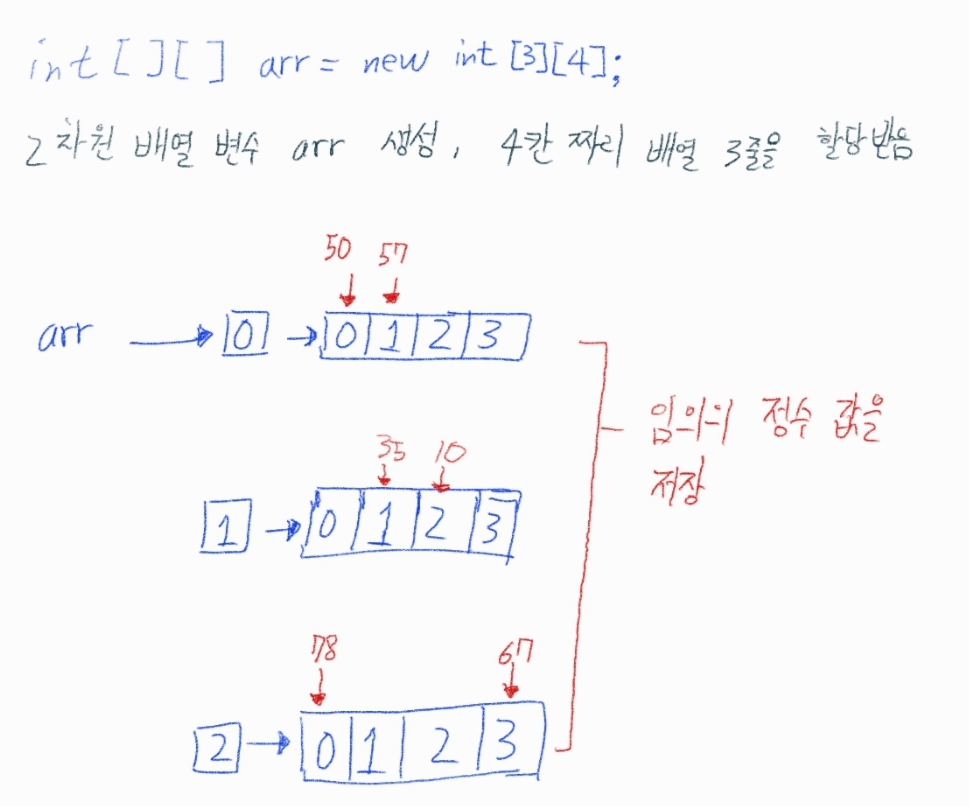 int[][] arr = new int[3][4];
2차원 배열 변수 arr 생성, 4칸 짜리 배열 3줄을 할당받음
50 57
arr 0 0 1 2 3
임의의 정수 값을
저장
35 10
1 0 1 2 3
78 67
2 0 1 2 3